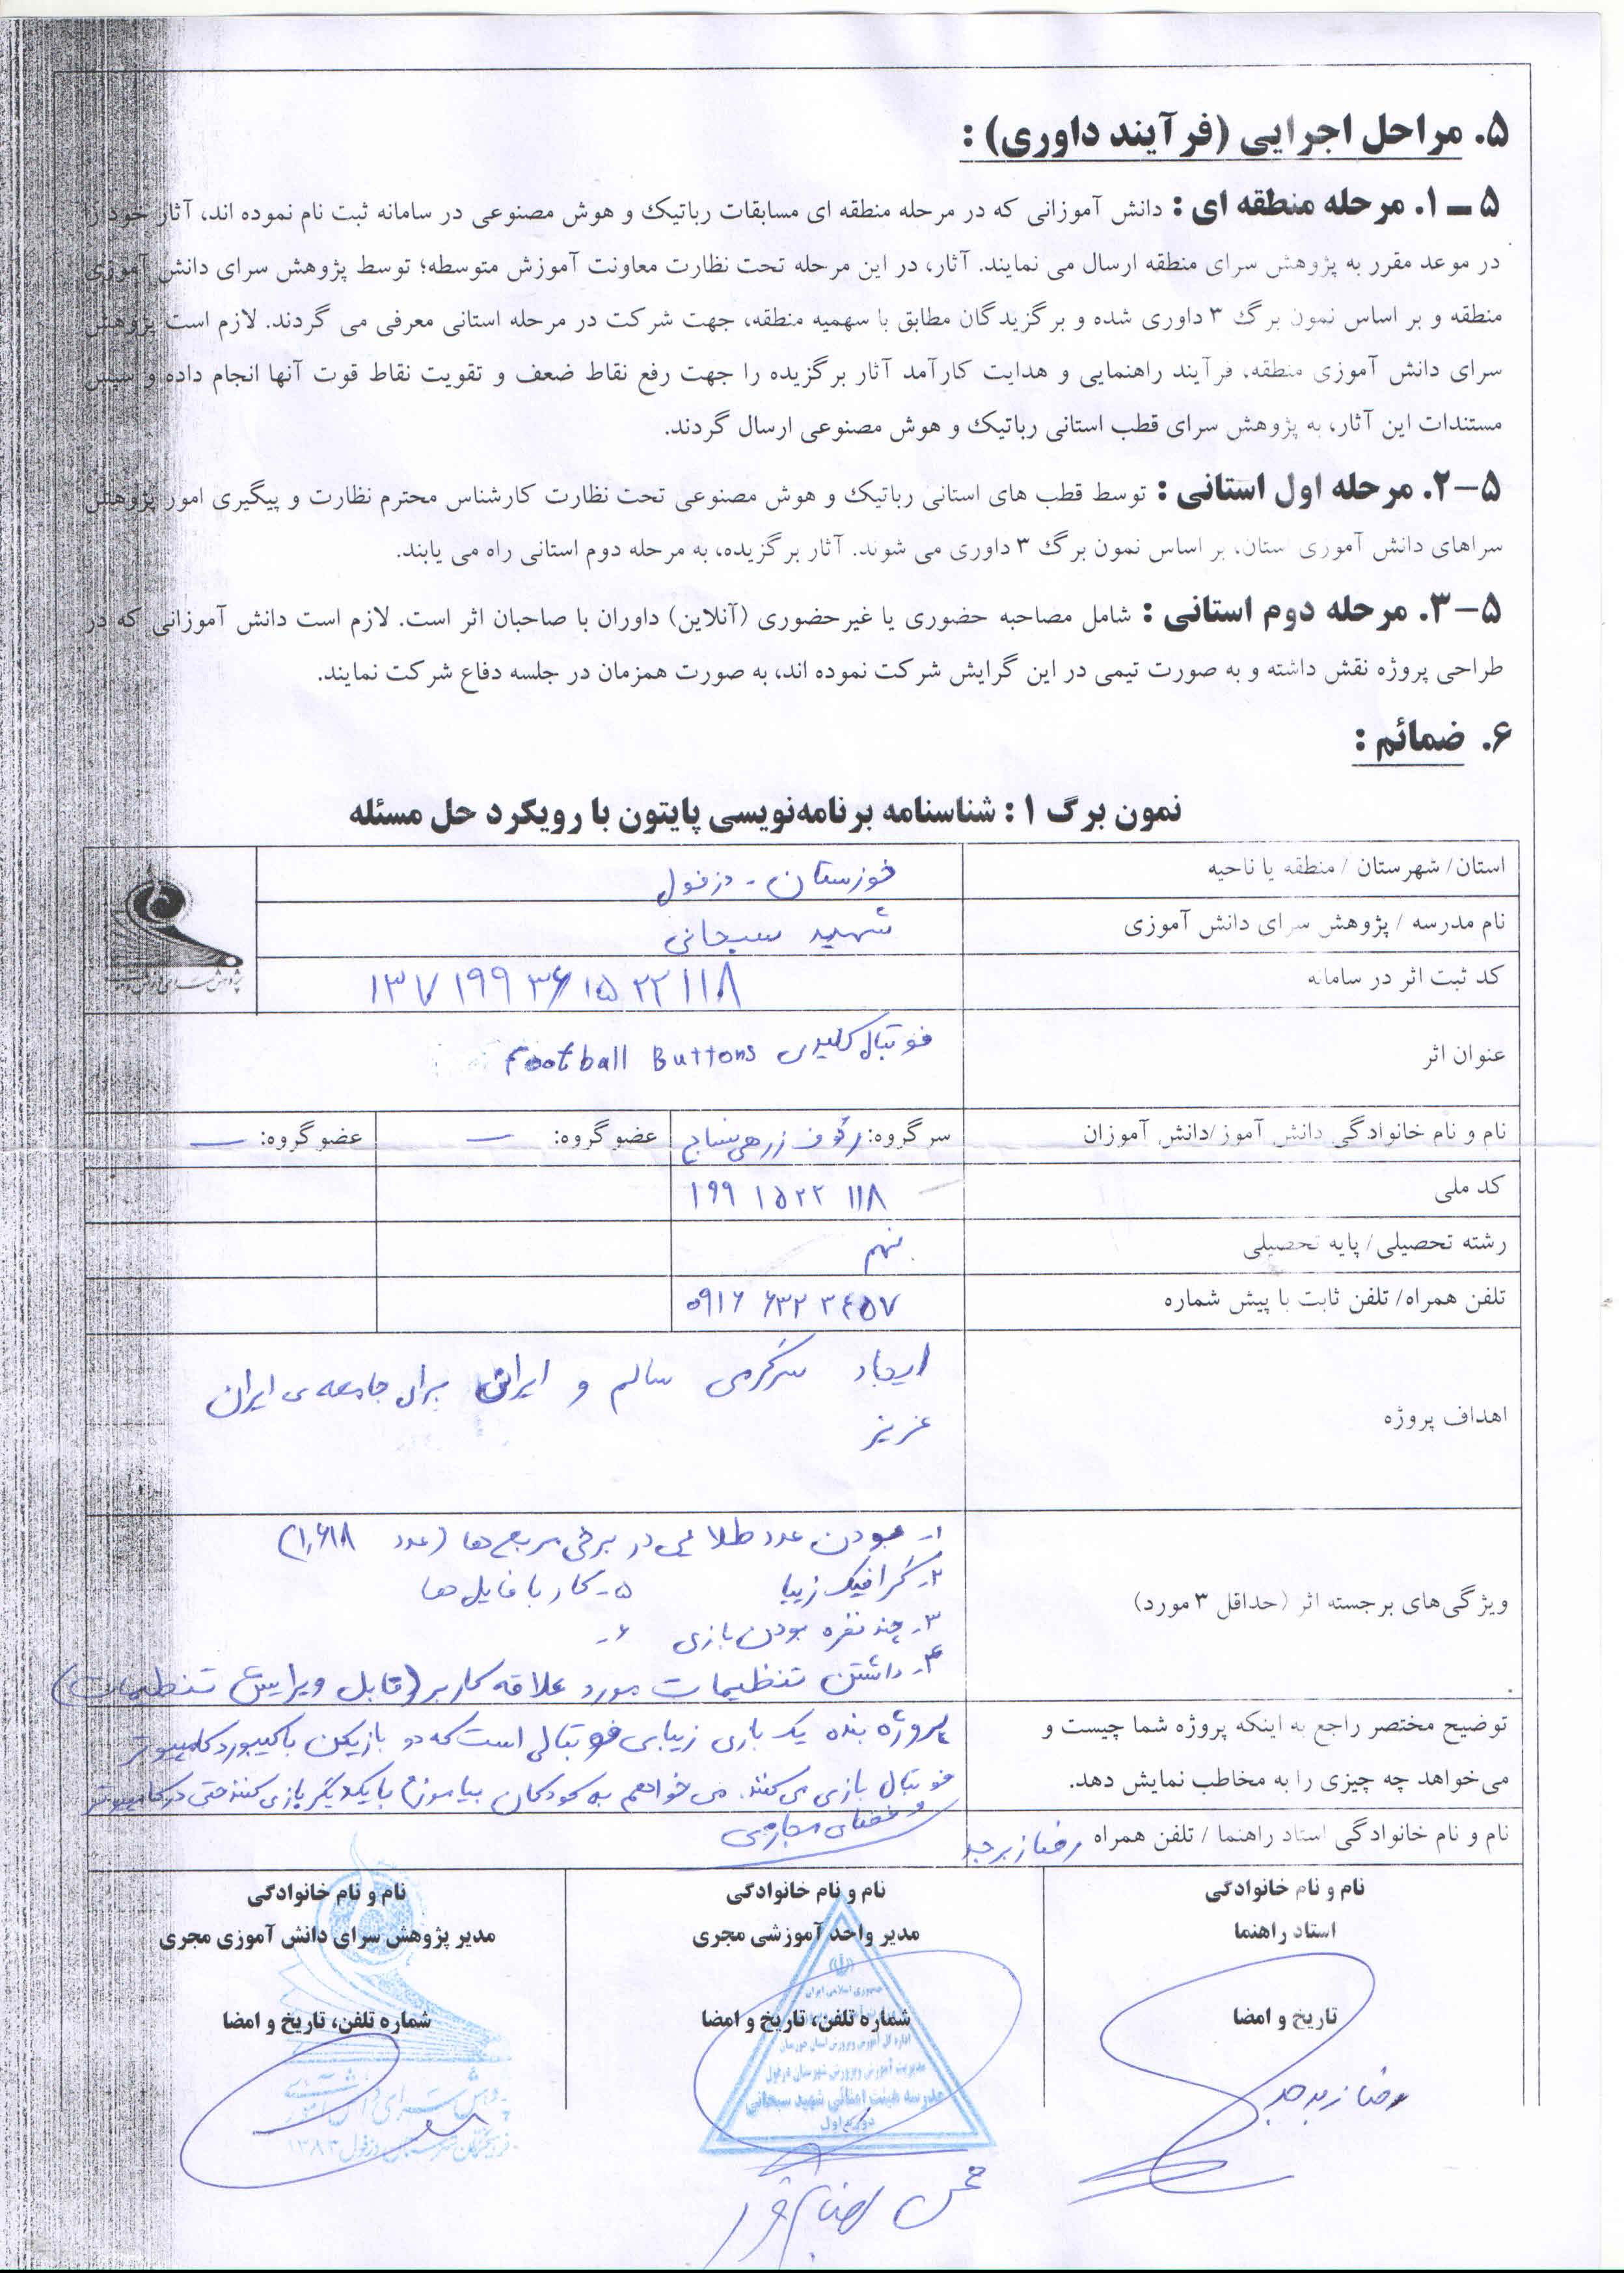 ۵. مراحل اجرایی (فرآیند داوری) :
۵ ـ ۱. مرحله منطقه ای : دانش آموزانی که در مرحله منطقه ای مسابقات رباتیک و هوش مصنوعی در سامانه ثبت نام نموده اند، آثار خود را
در موعد مقرر به پژوهش سرای منطقه ارسال می نمایند. آثار، در این مرحله تحت نظارت معاونت آموزش متوسطه؛ توسط پژوهش سرای دانش آموزی
منطقه و بر اساس نمون برگ ۳ داوری شده و برگزیدگان مطابق با سهمیه منطقه، جهت شرکت در مرحله استانی معرفی می گردند. لازم است پژوهش
سرای دانش آموزی منطقه، فرآیند راهنمایی و هدایت کارآمد آثار برگزیده را جهت رفع نقاط ضعف و تقویت نقاط قوت آنها انجام داده و سپس
مستندات این آثار، به پژوهش سرای قطب استانی رباتیک و هوش مصنوعی ارسال گردند.
۵-۲. مرحله اول استانی : توسط قطب های استانی رباتیک و هوش مصنوعی تحت نظارت کارشناس محترم نظارت و پیگیری امور پژوهش
سراهای دانش آموزی استان، بر اساس نمون برگ ۳ داوری می شوند. آثار برگزیده، به مرحله دوم استانی راه می یابند.
۵-۳. مرحله دوم استانی : شامل مصاحبه حضوری یا غیرحضوری (آنلاین) داوران با صاحبان اثر است. لازم است دانش آموزانی که در
طراحی پروژه نقش داشته و به صورت تیمی در این گرایش شرکت نموده اند، به صورت همزمان در جلسه دفاع شرکت نمایند.
۶. ضمائم :
نمون برگ ۱ : شناسنامه برنامه‌نویسی پایتون با رویکرد حل مسئله
استان/ شهرستان / منطقه یا ناحیه خوزستان - دزفول
نام مدرسه / پژوهش سرای دانش آموزی شهید سبحانی
کد ثبت اثر در سامانه
عنوان اثر فوتبال کلیدی Football Buttons
نام و نام خانوادگی دانش آموز/دانش آموزان سر گروه: رئوف زرهی نساج عضو گروه: — عضو گروه: —
کد ملی ۱۹۹ ۱۵۲۲ ۱۱۸
رشته تحصیلی/ پایه تحصیلی نهم
تلفن همراه/ تلفن ثابت با پیش شماره ۰۹۱۶ ۶۳۲ ۳۴۵۷
اهداف پروژه
ایجاد سرگرمی سالم و ایرانی برای جامعه ی ایران
عزیز
ویژگی‌های برجسته اثر (حداقل ۳ مورد)
۱- بودن عدد طلایی در برخی مربع ها (عدد ۱,۶۱۸)
۲- گرافیک زیبا ۵- کار با فایل ها
۳- چند نفره بودن بازی ۶-
۴- داشتن تنظیمات مورد علاقه کاربر (قابل ویرایش تنظیمات)
توضیح مختصر راجع به اینکه پروژه شما چیست و
می‌خواهد چه چیزی را به مخاطب نمایش دهد.
پروژه بنده یک بازی زیبای فوتبالی است که دو بازیکن با کیبورد کامپیوتر
فوتبال بازی می کنند. می خواهم به کودکان بیاموزم با یکدیگر بازی کنند حتی در کامپیوتر
و فضای مجازی
نام و نام خانوادگی استاد راهنما / تلفن همراه رضا زبرجد
نام و نام خانوادگی
استاد راهنما
تاریخ و امضا
رضا زبرجد
نام و نام خانوادگی
مدیر واحد آموزشی مجری
شماره تلفن، تاریخ و امضا
جمهوری اسلامی ایران
اداره کل آموزش و پرورش استان خوزستان
مدیریت آموزش و پرورش شهرستان دزفول
مدرسه هیئت امنائی شهید سبحانی
دوره اول
نام و نام خانوادگی
مدیر پژوهش سرای دانش آموزی مجری
شماره تلفن، تاریخ و امضا